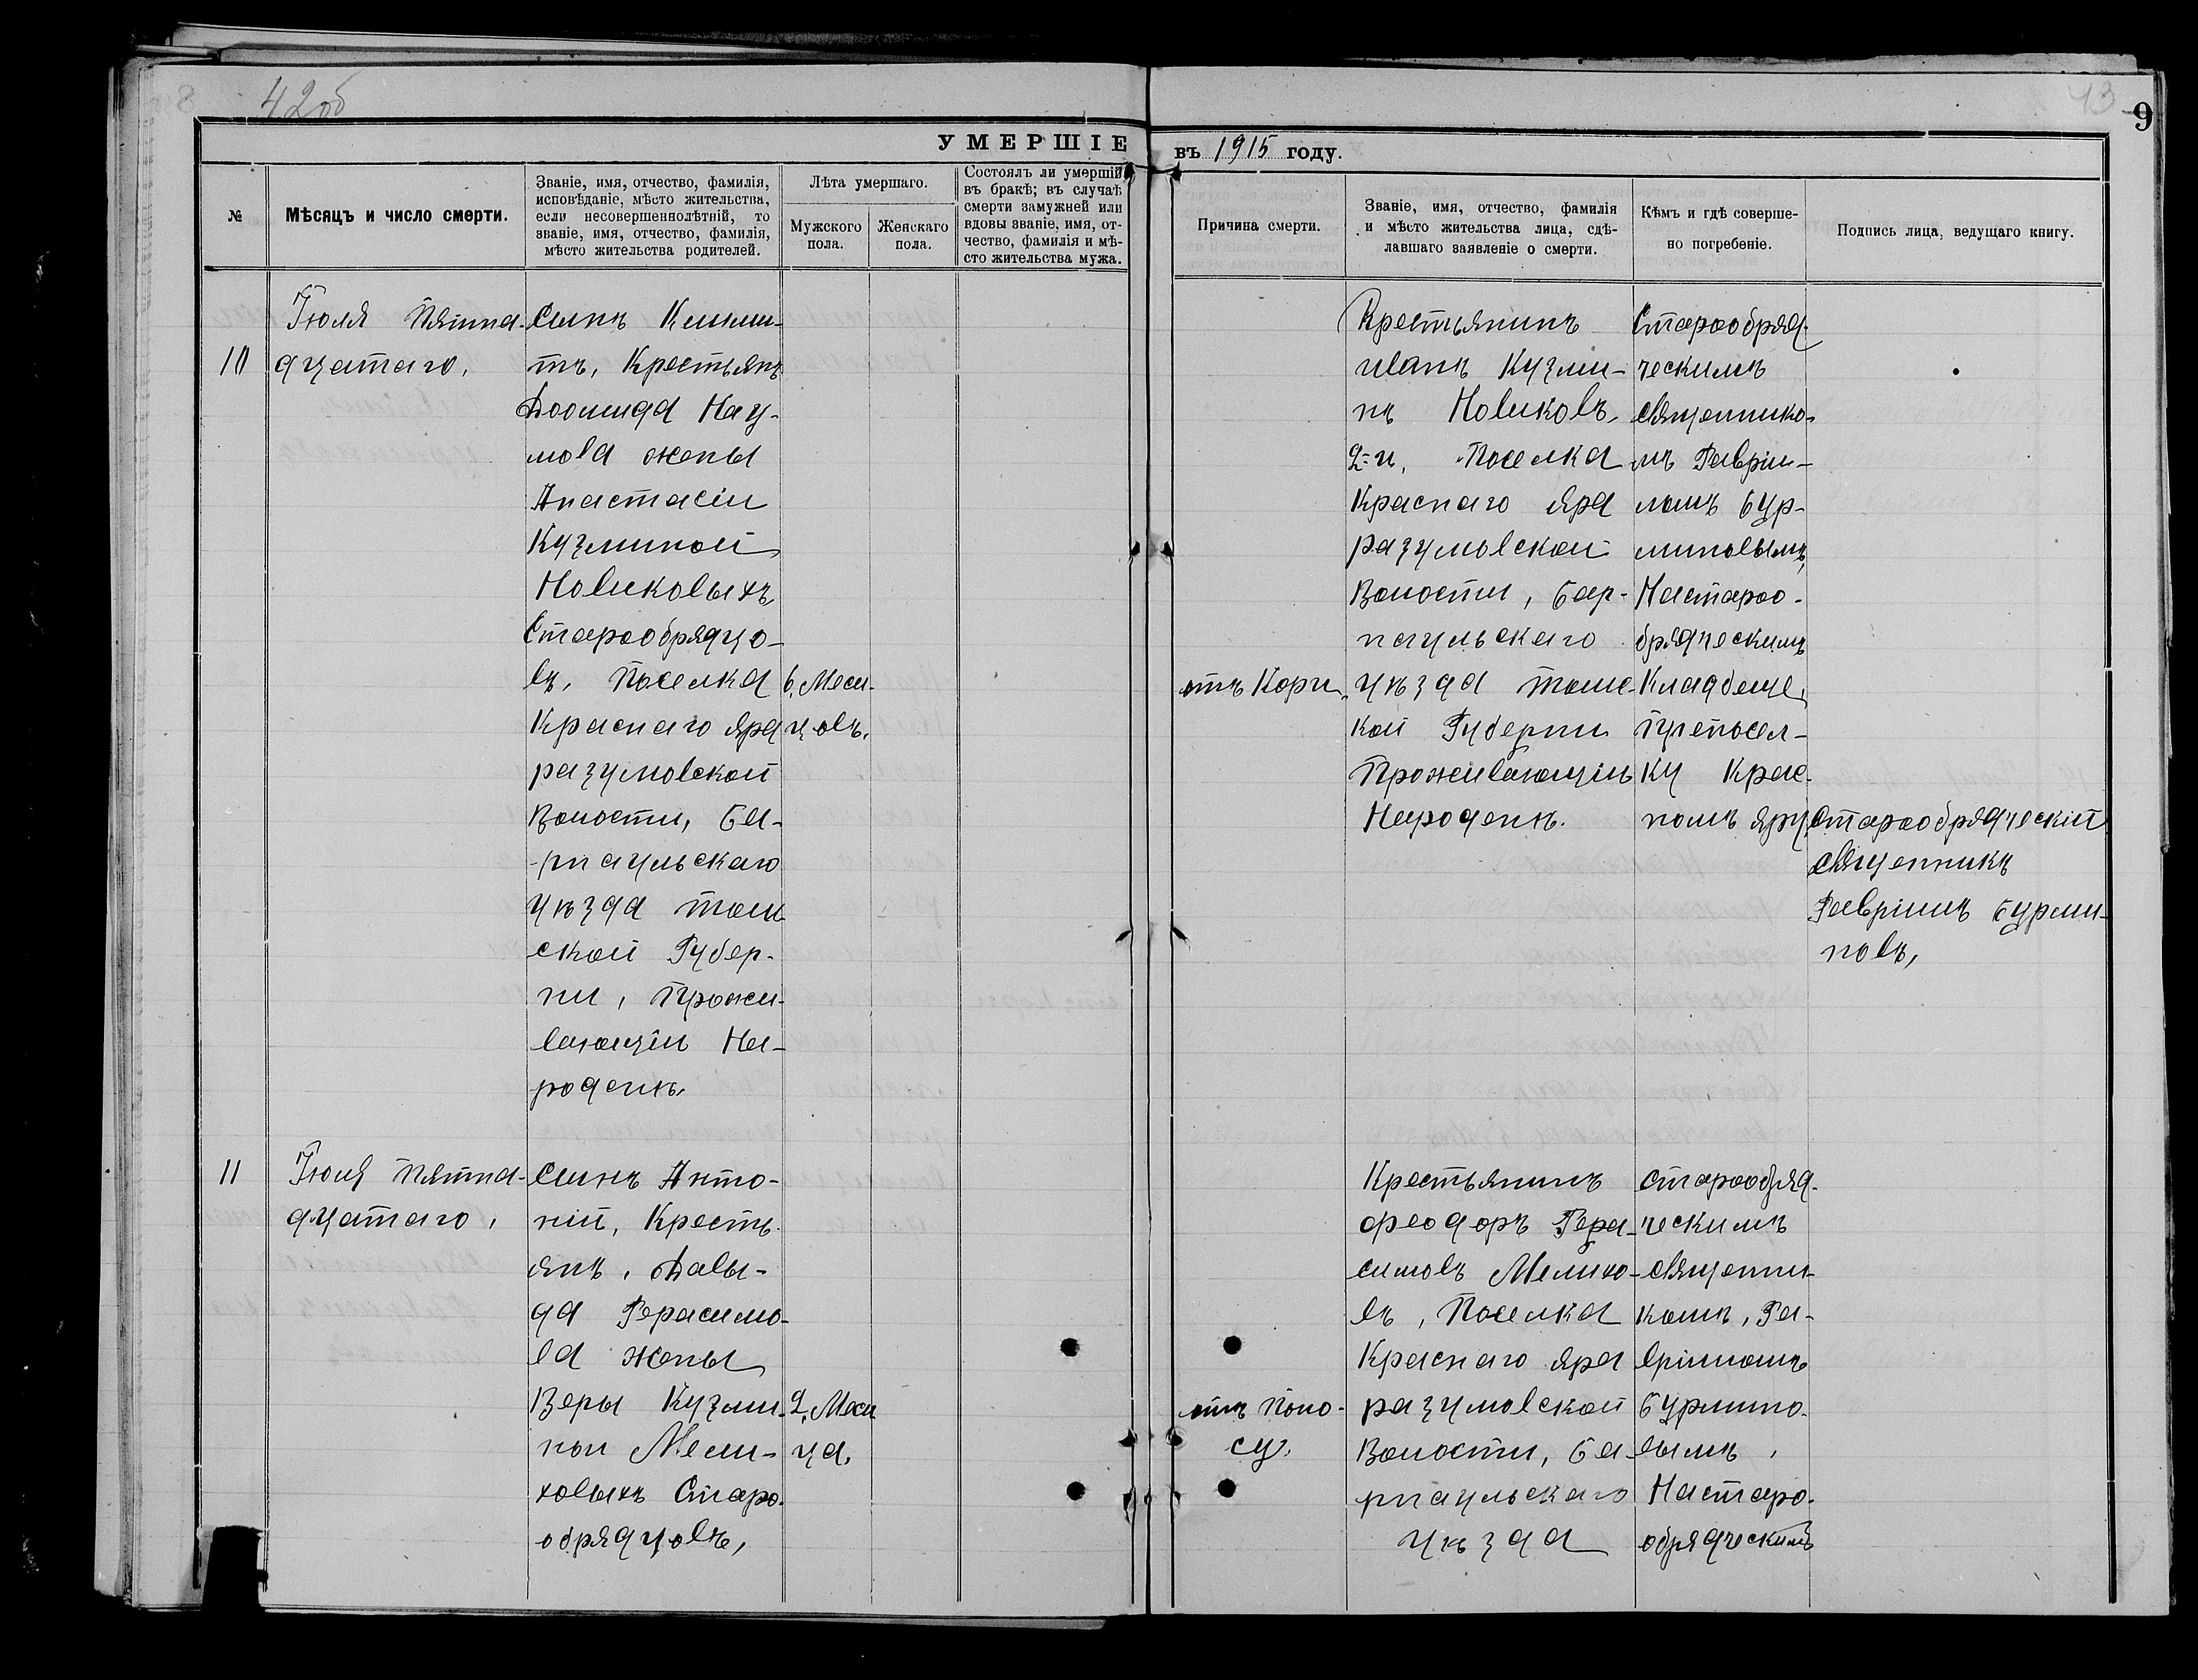 42об
43
9
УМЕРШІЕ
въ 1915 году.
№
Мѣсяцъ и число смерти.
Званіе, имя, отчество, фамилія,
исповѣданіе, мѣсто жительства,
если несовершеннолѣтній, то
званіе, имя, отчество, фамилія,
мѣсто жительства родителей.
Лѣта умершаго.
Мужского
пола.
Женскаго
пола.
Состоялъ ли умершій
въ бракѣ; въ случаѣ
смерти замужней или
вдовы званіе, имя, от-
чество, фамилія и мѣ-
сто жительства мужа.
Причина смерти.
Званіе, имя, отчество, фамилія
и мѣсто жительства лица, сдѣ-
лавшаго заявленіе о смерти.
Кѣмъ и гдѣ соверше-
но погребеніе.
Подпись лица, ведущаго книгу.
10
Іюля Пятна-
дцатаго,
Сынъ Климен-
тъ, Крестьянъ
Доомида Нау-
мова жены
Анастасіи
Кузминой
Новиковыхъ
Старообрядцо-
въ, Поселка
Краснаго Яра
разумовской
Волости, Ба-
рнаульскаго
уѣзда том-
ской Губер-
ни, Прожи-
вающіи На-
роденъ,
6, Меси-
цовъ,
отъ Кори,
Крестьянинъ
иванъ Кузми-
нъ Новиковъ,
2-й, Поселка
Краснаго Яра
разумовской
Волости, Бар-
наульскаго
уѣзда томс-
кой Губерни
Проживающіи
Народенъ.
Старообряд-
ческимъ
священнико-
мъ Гавріи-
ломъ Бур-
миновымъ,
Настароо-
брядческимъ
Кладбеще,
припосел-
ку Крас-
номъ яру,
Старообрядческій
священникъ
Гавріилъ Бурми-
новъ,
11
Іюля Пятна-
дцатаго,
Сынъ Анто-
ній, Кресть-
янъ, Давы-
да Герасимо-
ва жены
Веры Кузми-
ной Мели-
ховыхъ Старо-
обрядцовъ,
2, Меси
ца,
отъ Поно-
су,
Крестьянинъ
феодоръ Гера-
симовъ Мелихо-
въ, Поселка
Краснаго яра
разумовской
Волости, Ба-
рнаульскаго
уѣзда
Старообряд-
ческимъ
священни-
комъ, Га-
вріиломъ
Бурмино-
вымъ,
Настаро-
обрядческимъ